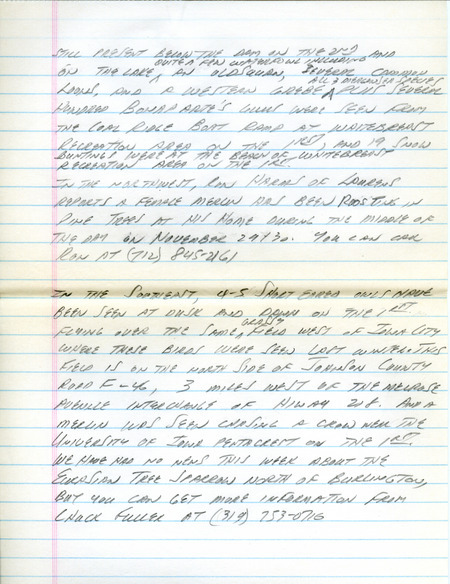 STILL PRESENT BELOW THE DAM ON THE 2ND AND
QUITE A FEW WATERFOWL INCLUDING
ON THE LAKE, AN OLDSQUAW, SEVERAL COMMON
ALL 3 MERGANSER SPECIES
LOONS, AND A WESTERN GREBE PLUS SEVERAL
HUNDRED BONAPARTE'S GULLS WERE SEEN FROM
THE COAL RIDGE BOAT RAMP AT WHITEBREAST
RECREATION AREA ON THE 1ST, AND 19 SNOW
BUNTINGS WERE AT THE BEACH OF WHITEBREAST
RECREATION AREA ON THE 1ST.
IN THE NORTHWEST, RON HARMS OF LAURENS
REPORTS A FEMALE MERLIN HAS BEEN ROOSTING IN
PINE TREES AT HIS HOME DURING THE MIDDLE OF
THE DAY ON NOVEMBER 29 + 30. YOU CAN CALL
RON AT (712) 845-2161
IN THE SOUTHEAST, 4-5 SHORT EARED OWLS HAVE
BEEN SEEN AT DUSK AND DAWN ON THE 1ST
GRASSY
FLYING OVER THE SAME FIELD WEST OF IOWA CITY
WHERE THESE BIRDS WERE SEEN LAST WINTER. THIS
FIELD IS ON THE NORTH SIDE OF JOHNSON COUNTY
ROAD F-46, 3 MILES WEST OF THE MELROSE
AVENUE INTERCHANGE OF HIWAY 218. AND A
MERLIN WAS SEEN CHASING A CROW NEAR THE
UNIVERSITY OF IOWA PENTACREST ON THE 1ST.
WE HAVE HAD NO NEWS THIS WEEK ABOUT THE
EURASIAN TREE SPARROW NORTH OF BURLINGTON,
BUT YOU CAN GET MORE INFORMATION FROM
CHUCK FULLER AT (319) 753-0716